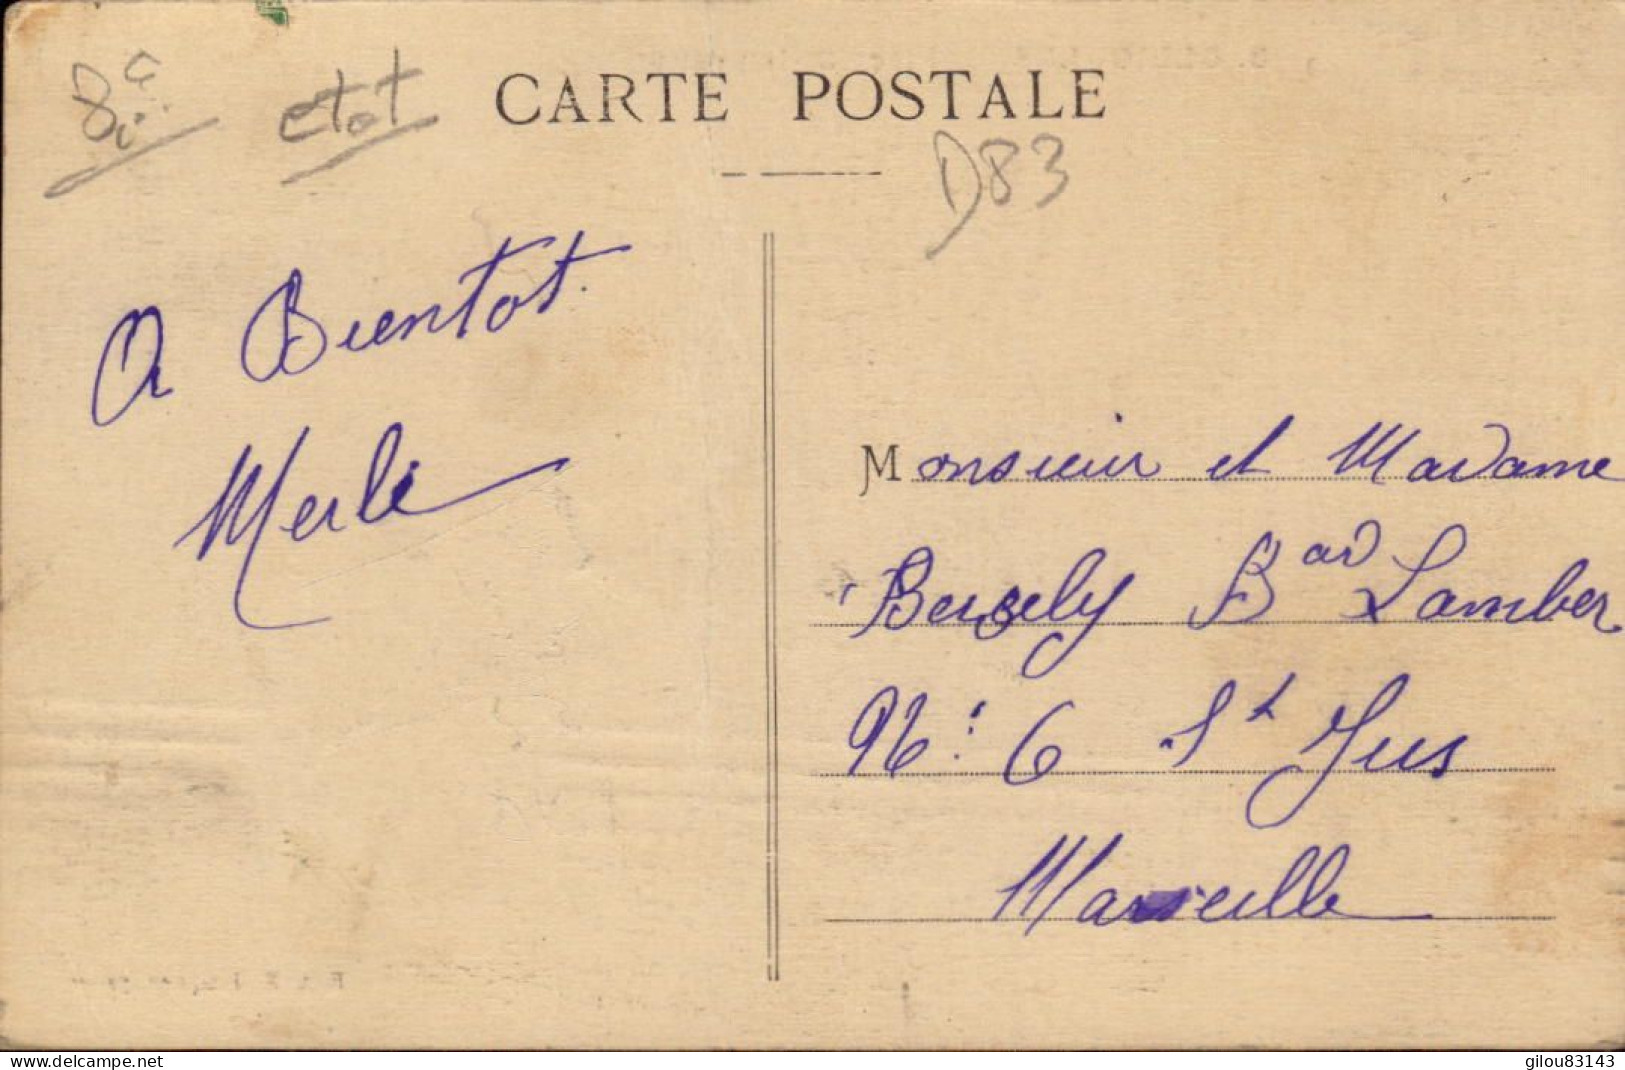 etat
CARTE POSTALE
D83
A Bientot.
Merle
Monsieur et Madame
Bersely Bard Lamber
No: 6 St Jus
Marseille
www.delcampe.net
gilou83143